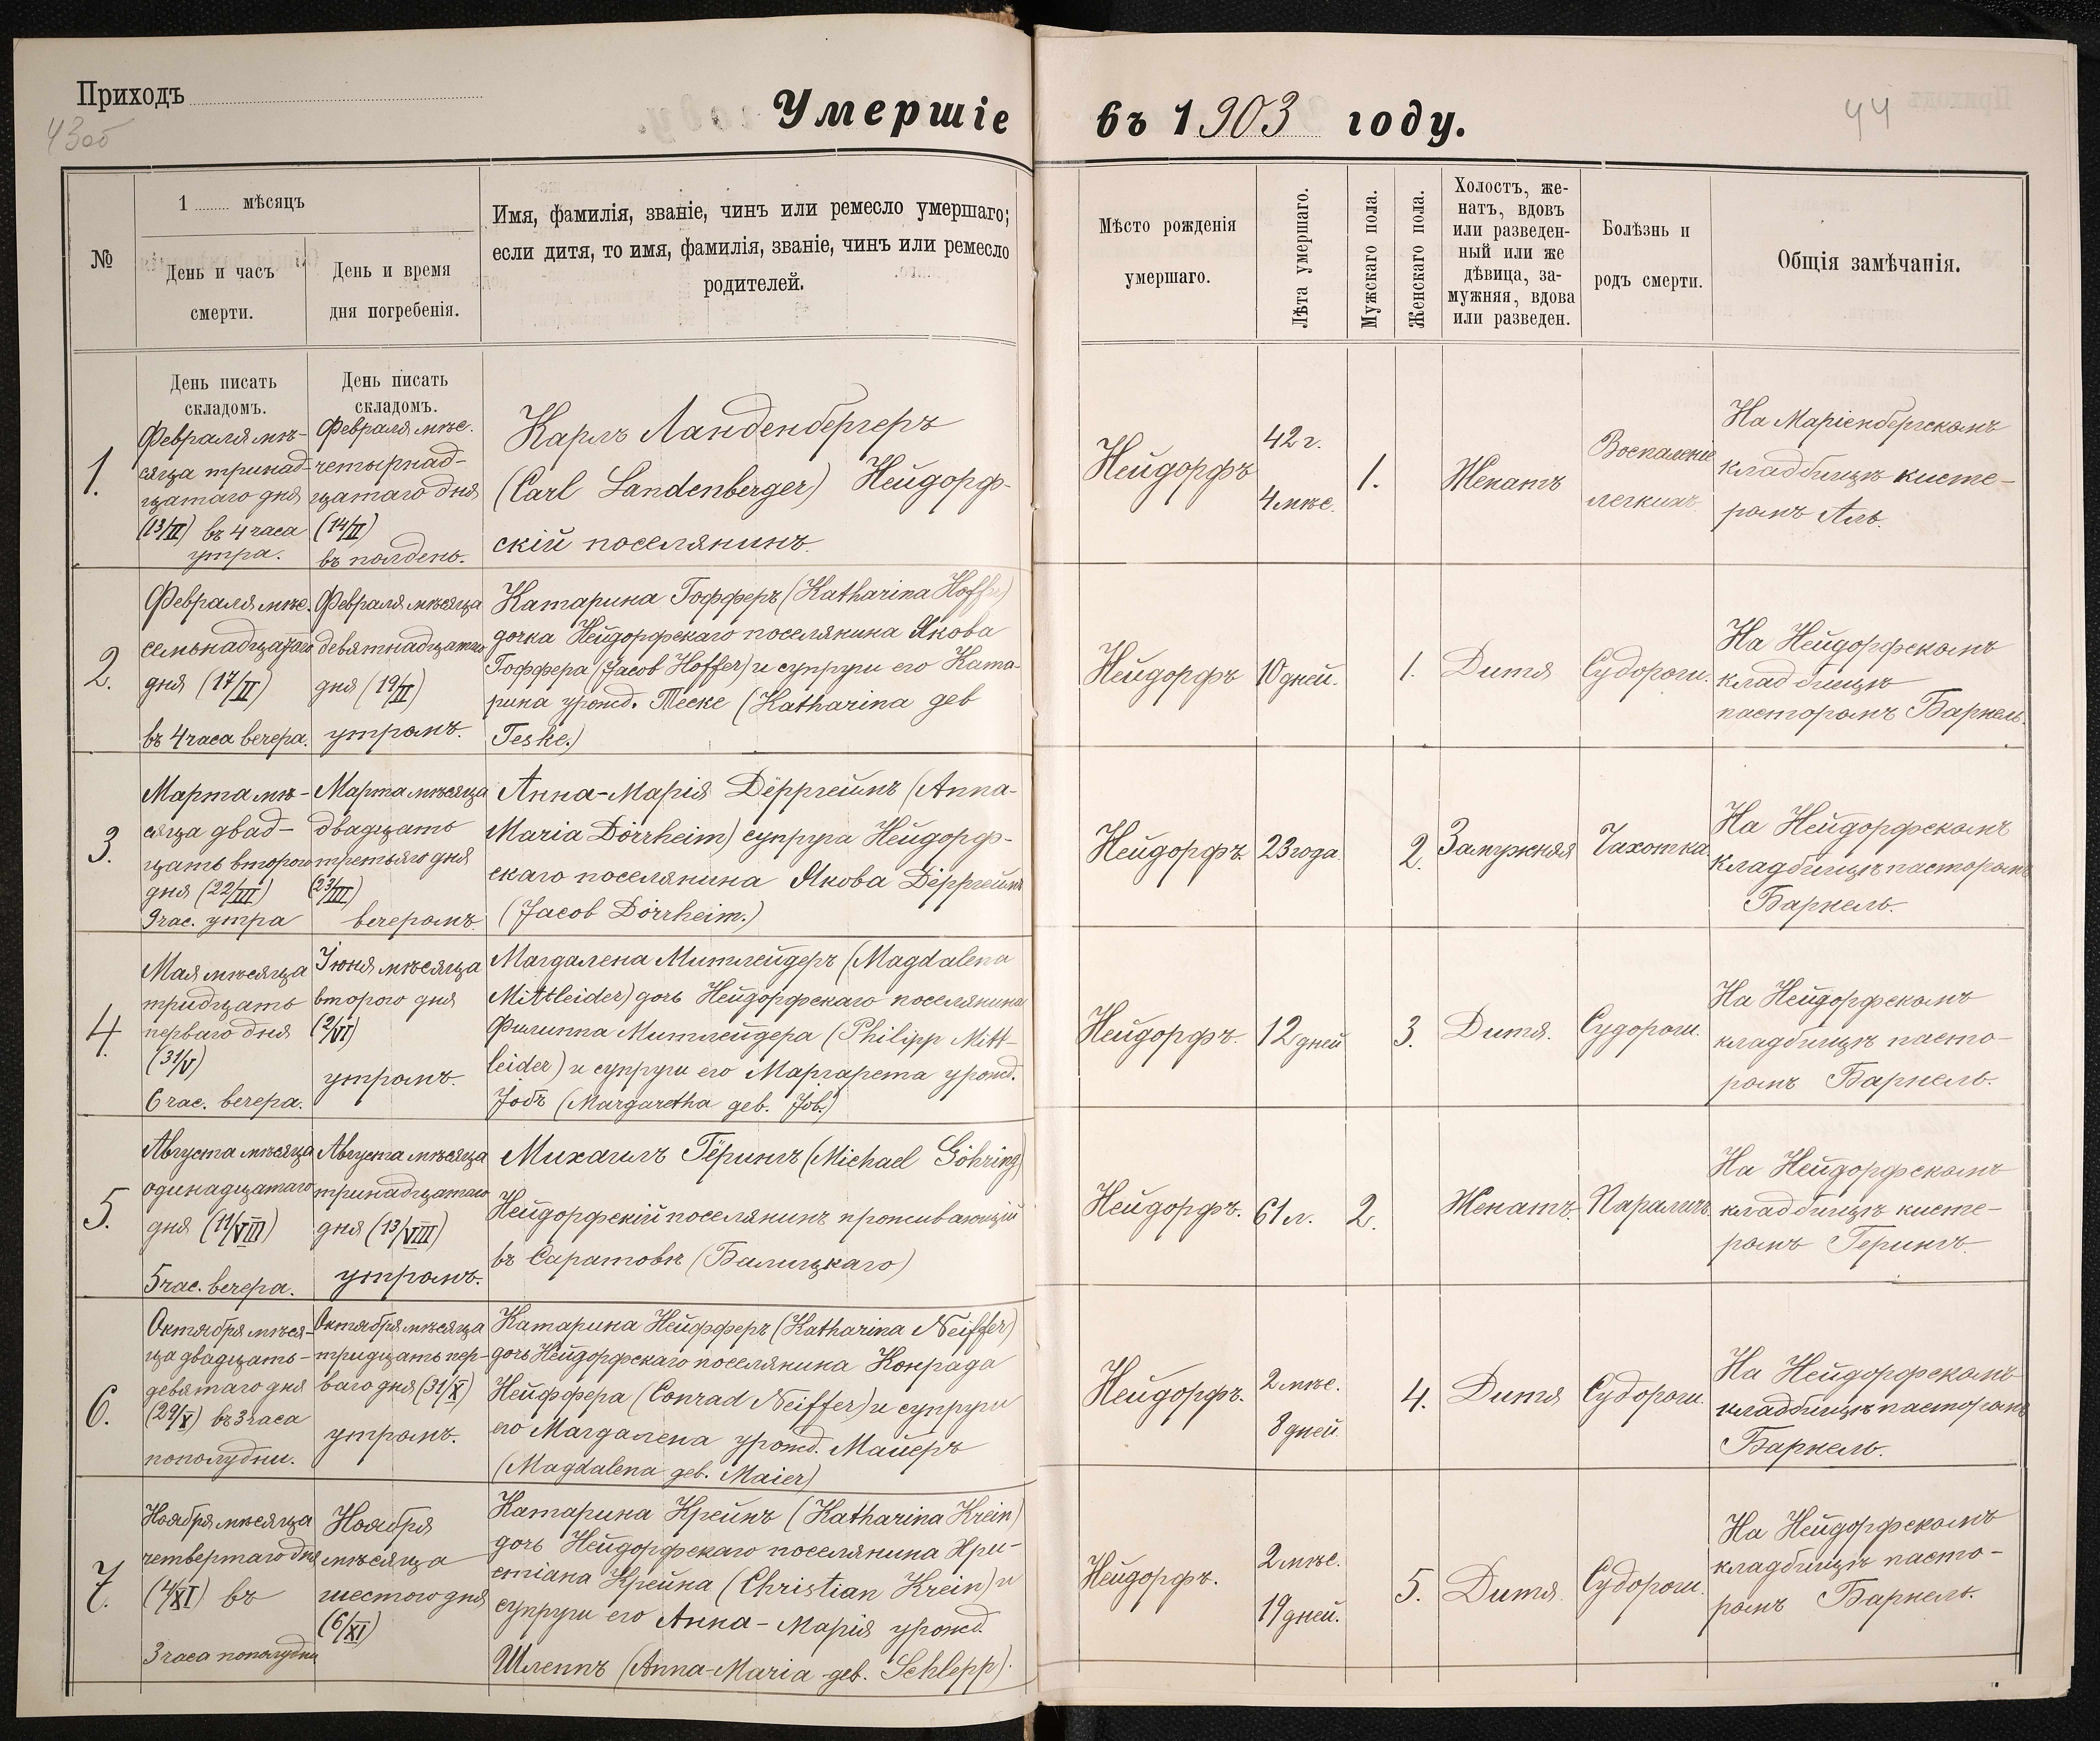 Приходъ
43об
Умершіе
въ 1903 году.
44
№
1 мѣсяцъ
День и часъ
смерти.
День и время
дня погребенія.
Имя, фамилія, званіе, чинъ или ремесло умершаго;
если дитя, то имя, фамилія, званіе, чинъ или ремесло
родителей.
Мѣсто рожденія
умершаго.
Лѣта умершаго.
Мужскаго пола.
Женскаго пола.
Холостъ, же-
натъ, вдовъ
или разведен-
ный или же
дѣвица, за-
мужняя, вдова
или разведен.
Болѣзнь и
родъ смерти.
Общія замѣчанія.
День писать
складомъ.
День писать
складомъ.
1.
Февраля мѣ-
сяца тринад-
цатаго дня
(13/II) въ 4 часа
утра.
Февраля мѣс.
четырнад-
цатаго дня
(14/II)
въ полдень.
Карлъ Ланденбергеръ
(Carl Landenberger) Нейдорф-
скій поселянинъ.
Нейдорфъ
42 г.
4 мѣс.
1.
Женатъ
Воспаленіе
легкихъ.
На Маріенбергскомъ
кладбищѣ кисте-
ромъ Аль.
2.
Февраля мѣс.
семьнадцатаго
дня (17/II)
въ 4 часа вечера.
Февраля мѣсяца
девятнадцатаго
дня (19/II)
утромъ.
Катарина Гофферъ (Katharina Hoffer)
дочка Нейдорфскаго поселянина Якова
Гоффера (Jacob Hoffer) и супруги его Ката-
рина урожд. Теске (Katharina geb
Teske.)
Нейдорфъ
10 дней.
1.
Дитя
Судороги.
На Нейдорфскомъ
кладбищѣ
пасторомъ Барнель.
3.
Марта мѣ-
сяца двад-
цать второго
дня (22/III)
9 час. утра
Марта мѣсяца
двадцать
третьяго дня
(23/III)
вечеромъ.
Анна-Марія Дёрргеймъ (Anna-
Maria Dörrheim) супруга Нейдорф-
скаго поселянина Якова Дёрргеймъ
(Jacob Dörrheim.)
Нейдорфъ.
23 года.
2.
Замужняя
Чахотка.
На Нейдорфскомъ
кладбищѣ пасторомъ
Барнель.
4.
Мая мѣсяца
тридцать
перваго дня
(31/V)
6 час. вечера.
Іюня мѣсяца
второго дня
(2/VI)
утромъ.
Магдалена Митлейдеръ (Magdalena
Mittleider) дочь Нейдорфскаго поселянина
Филиппа Митлейдера (Philipp Mitt-
leider) и супруги его Маргарета урожд.
Іобъ (Margaretha geb. Job.)
Нейдорфъ.
12 дней
3.
Дитя.
Судороги.
На Нейдорфскомъ
кладбищѣ пасто-
ромъ Барнель.
5.
Августа мѣсяца
одинадцатаго
дня (11/VIII)
5 час. вечера.
Августа мѣсяца
тринадцатаго
дня (13/VIII)
утромъ.
Михаилъ Гёрингъ (Michael Göhring)
Нейдорфскій поселянинъ проживающій
въ Саратовѣ (Балицкаго)
Нейдорфъ.
61 л.
2.
Женатъ.
Параличъ.
На Нейдорфскомъ
кладбищѣ кисте-
ромъ Герингъ.
6.
Октября мѣся-
ца двадцать-
девятаго дня
(29/X) въ 3 часа
пополудни.
Октября мѣсяца
тридцать пер-
ваго дня (31/X)
утромъ.
Катарина Нейфферъ (Katharina Neiffer)
дочь Нейдорфскаго поселянина Конрада
Нейффера (Conrad Neiffer) и супруги
его Магдалена урожд. Маиеръ
(Magdalena geb. Maier)
Нейдорфъ.
2 мѣс.
8 дней.
4.
Дитя
Судороги.
На Нейдорфскомъ
кладбищѣ пасторомъ
Барнель.
7.
Ноября мѣсяца
четвертаго дня
(4/XI) въ
3 часа пополудни
Ноября
мѣсяца
шестого дня
(6/XI)
Катарина Крейнъ (Katharina Krein)
дочь Нейдорфскаго поселянина Хри-
стіана Крейна (Christian Krein) и
супруги его Анна-Марія урожд.
Шлеппъ (Anna-Maria geb. Schlepp).
Нейдорфъ.
2 мѣс.
19 дней.
5.
Дитя.
Судороги.
На Нейдорфскомъ
кладбищѣ пасто-
ромъ Барнель.